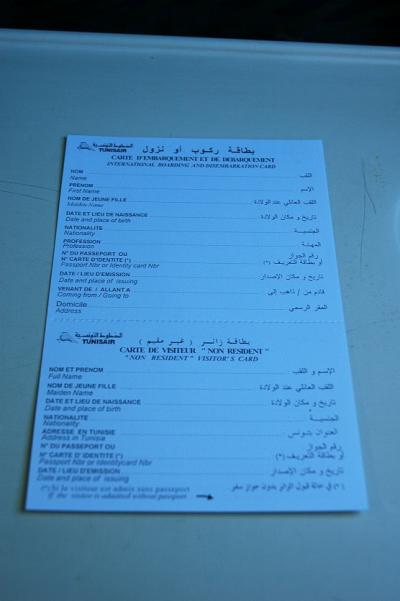 الخطوط التونسية
TUNISAIR
بطاقة ركوب أو نزول
CARTE D'EMBARQUEMENT ET DE DEBARQUEMENT
INTERNATIONAL BOARDING AND DISEMBARKATION CARD
NOM اللقب
Name
PRENOM الإسم
First Name
NOM DE JEUNE FILLE اللقب العائلي عند الولادة
Maiden Name
DATE ET LIEU DE NAISSANCE تاريخ و مكان الولادة
Date and place of birth
NATIONALITE الجنسية
Nationality
PROFESSION المهنة
Profession
N° DU PASSEPORT OU رقم الجواز
N° CARTE D'IDENTITE (*) أو بطاقة التعريف (*)
Passport Nbr or Identity card Nbr
DATE / LIEU D'EMISSION تاريخ و مكان الإصدار
Date and place of issuing
VENANT DE / ALLANT A قادم من / ذاهب إلى
Coming from / Going to
Domicile المقر الرسمي
Address
الخطوط التونسية
TUNISAIR
بطاقة زائر ( غير مقيم )
CARTE DE VISITEUR " NON RESIDENT "
"NON RESIDENT" VISITOR'S CARD
NOM ET PRENOM الإسم و اللقب
Full Name
NOM DE JEUNE FILLE اللقب العائلي عند الولادة
Maiden Name
DATE ET LIEU DE NAISSANCE تاريخ و مكان الولادة
Date and place of birth
NATIONALITE الجنسية
Nationality
ADRESSE EN TUNISIE العنوان بتونس
Address in Tunisia
N° DU PASSEPORT OU رقم الجواز
N° CARTE D'IDENTITE (*) أو بطاقة التعريف (*)
Passport Nbr or Identitycard Nbr
DATE / LIEU D'EMISSION تاريخ و مكان الإصدار
Date and place of issuing
(*) Si le visiteur est admis sans passeport (*) في حالة قبول الزائر بدون جواز سفر
If the visitor is admitted without passport